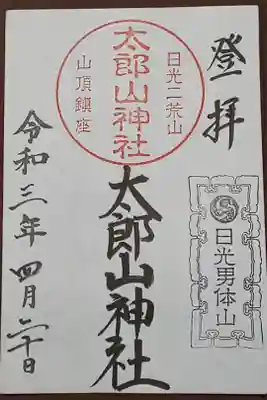 登拝
日光二荒山
太郎山神社
山頂鎮座
日光男体山
太郎山神社
令和三年四月二十日